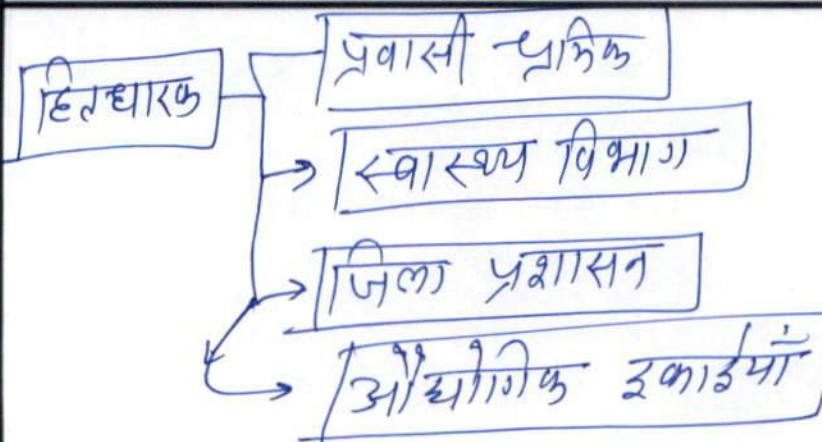 हितधारक
प्रवासी श्रमिक
स्वास्थ्य विभाग
जिला प्रशासन
औद्योगिक इकाईयाँ